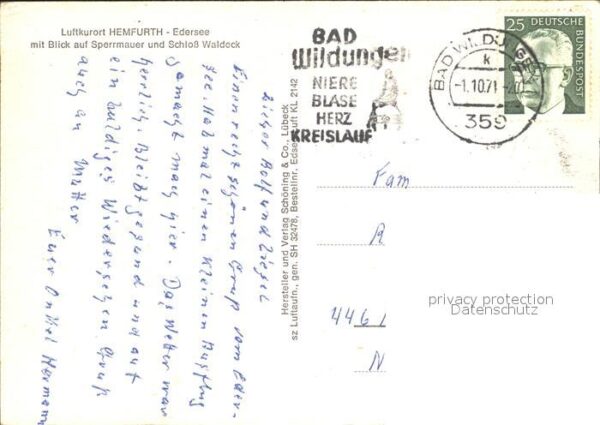 Luftkurort HEMFURTH - Edersee
mit Blick auf Sperrmauer und Schloß Waldeck
BAD
Wildungen
NIERE
BLASE
HERZ
KREISLAUF
BAD WILDUNGEN
k
-1.10.71-20
359
25 DEUTSCHE
BUNDESPOST
Lieber Rolf und
Einen recht schönen Gruß vom Eder-
see. Hab mal einen kleinen Ausflug
gemacht nach hier. Das Wetter war
herrlich. Bleibt gesund und auf
ein baldiges Wiedersehen. Gruß
auch an Mutter
Euer Onkel Hermann
Hersteller und Verlag Schöning & Co., Lübeck
sz Luftaufn., gen. SH 32478, Bestellnr. Edsee Luft KL 2142
Fam
R
4461
N
privacy protection
Datenschutz